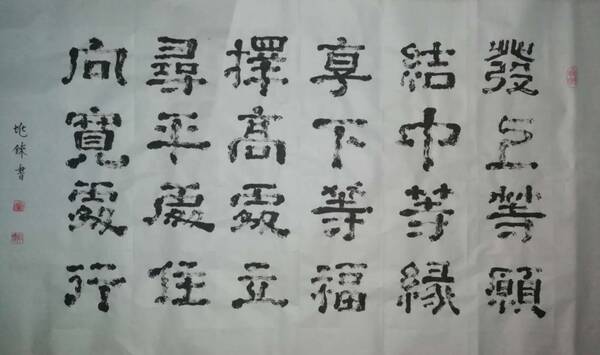 發上等願
結中等緣
享下等福
擇高處立
尋平處住
向寬處行